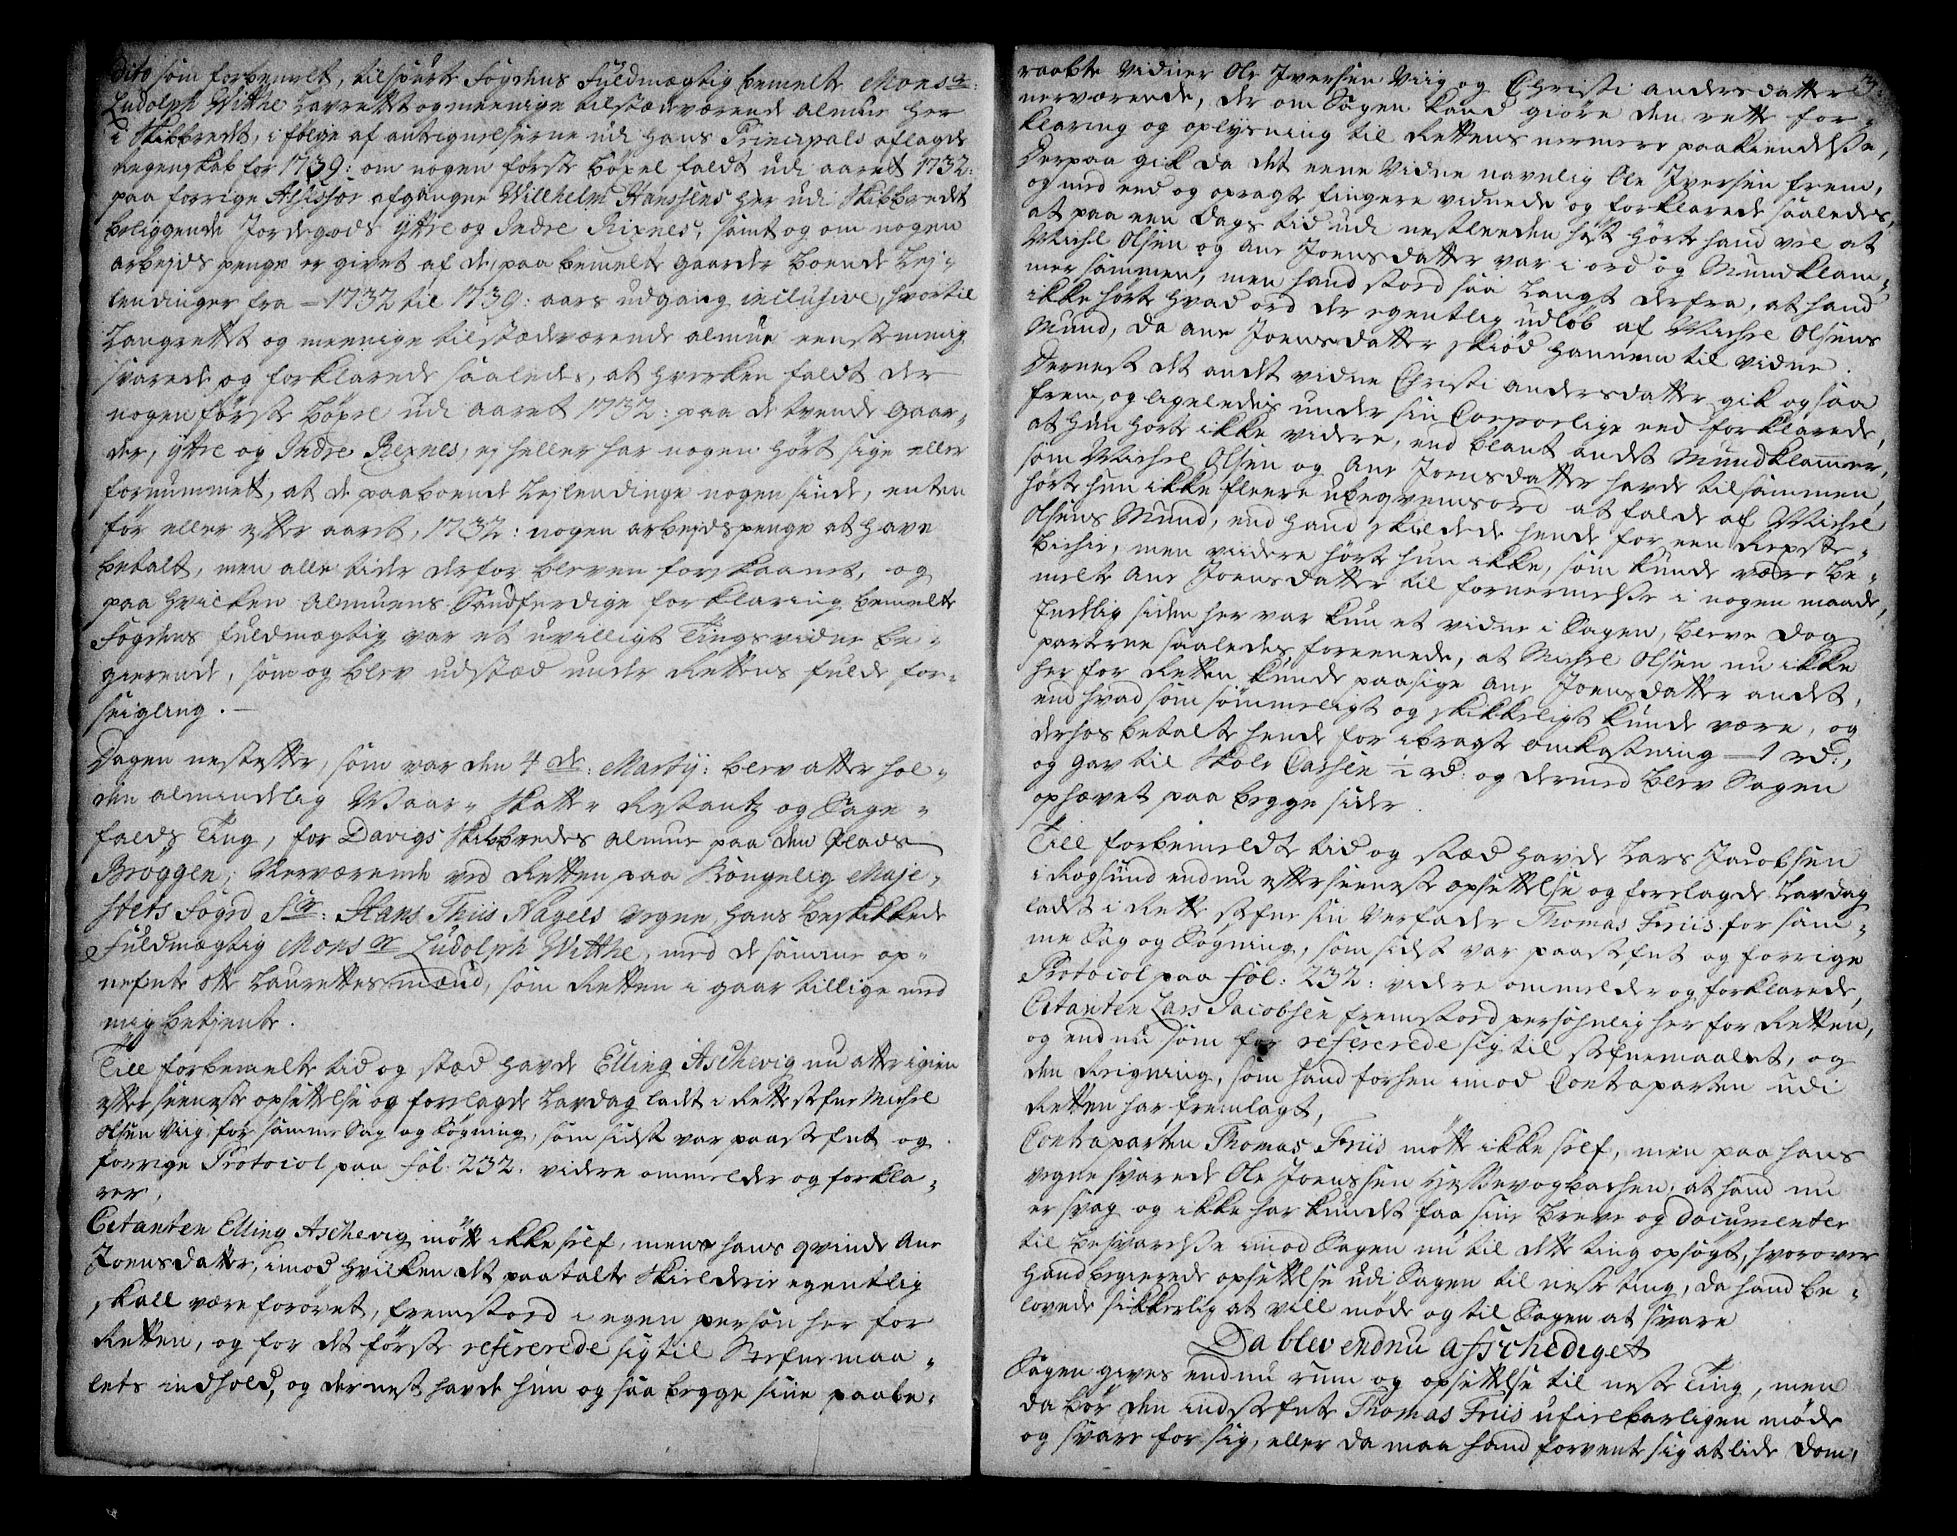 dito som forbemelt, tilspurte Fogdens Fuldmægtig bemelte Monsr:
Ludolph Witthe Lavrettet og meenige tilstædværende Almue her
i Skibbredet, i følge af antignelserne udi hans Principals aflagde
Regenskab for 1739: om nogen første bøxel faldt udi aaret 1732:
paa forrige Assissor afgangne Willhelm Hanssens her udi Skibbredet
beliggende Jordegods Yttre og Indre Rixnes, samt og om nogen
arbejds penge er givet af de paa bemelte gaarder boende Lej-
lendinger fra - 1732 til 1739: aars udgang inclusive, hvortil
Laugrettet og mennige tilstædværende almue eenstemmig
svarede og forklarede saaledes, at hverken faldt der
nogen første bøxle udi aaret 1732: paa de tvende gaar-
der, Yttre og Indre Rexnes, ej heller har nogen hørt sige eller
fornummet, at de paaboende Lejlendinge nogen sinde, enten
før eller efter aaret, 1732: nogen arbejdspenge at have
betalt, men alle tider derfor bleven forskaanet, og
paa hvilken Almuens Sandferdige forklaring bemelte
Fogdens fuldmægtig var et uvilligt Tingsvidne be-
gierende, som og blev udstæd under Rettens fulde for-
seigling. -
Dagen nestefter, som var den 4de: Martij: blev atter hol-
den almindelig Waar- Skatte- Restantz og Sage-
falds Ting, for Davigs Skibbredes Almue paa den Plads
Bryggen, Nerværende ved Retten paa Kongelig Maje-
stets Fogd Sr: Hans Thiis Nagels vegne, hans beskikkede
Fuldmægtig Monsr Ludolph Witthe, med de samme op-
nefnte otte Laurettesmænd, som Retten i gaar tillige med
mig betjente.
Till forbemelte tid og stæd havde Elling Aschevig nu atter igien
efter seeneste opsettelse og forelagde Lavdag ladt i Rette stefne Michel
Olsen Viig, for samme Sag og Søgning, som sidst var paastefnt og
forrige Protocol paa fol: 232: videre ommelder og forkla-
rer,
Citanten Elling Aschevig møtte ikke self, mens hans qvinde Ane
Joensdatter, imod hvilken det paatalte Skielderie egentlig
skall være forøvet, fremstod i egen persøn her for
Retten, og for det første refererede sig til Stefnemaa-
lets indhold, og dernest havde hun og saa begge sine paabe-
raabte Vidner Ole Iversen Viig og Christi Andersdatter
nerværende, der om Sagen kand giøre den rette for-
klaring og oplysning til Rettens nermere paakiendelse,
Derpaa gik da det eene Vidne navnlig Ole Iversen frem,
og med eed og opragte fingere vidnede og forklarede saaledes,
at paa een Dags tid udi nestleeden høst hørte hand vel at
Michel Olsen og Ane Joensdatter var i ord og Mundklam-
mer sammen, men hand stod saa langt derfra, at hand
ikke hørte hvad ord der egentlig udløb af Michel Olsens
Mund, da Ane Joensdatter skiød hannem til vidne.
Dernest det andet vidne Christi Andersdatter gik og saa
frem, og ligeledes under sin Corporlige eed forklarede,
at hun hørte ikke videre, end blant andet Mundklammer,
som Michel Olsen og Ane Joensdatter havde tilsammen,
hørte hun ikke fleere ubeqvemsord at falde af Michel
Olsens Mund, end hand skieldede hende for een Repste-
bichie, men viidere hørte hun ikke, som kunde være be-
melte Ane Joensdatter til fornermelse i nogen maade,
Endelig siden her var kun et vidne i Sagen, bleve dog
parterne saaledes foreenede, at Michel Olsen nu ikke
her for Retten kunde paasige Ane Joensdatter andet,
end hvad som sømmeligt og skikkeligt kunde være, og
derhos betalte hende for ibragte omkostning - 1 rd:,
og gav til Skole Cassen ½ rd: og dermed blev Sagen
ophævet paa begge sider.
Till forbemeldte tid og stæd havde Lars Jacobsen
i Rogsund endnu efter seeneste opsettelse og forelagde Lavdag
ladt i Rette stefne sin Verfader Thomas Friis for sam-
me Sag og Søgning, som sidst var paastefnt og forrige
Protocol paa fol: 232: videre ommelder og forklarede,
Citanten Lars Jacobsen fremstod persohnlig her for Retten,
og endnu som før refererede sig til stefnemaalet, og
den Reigning, som hand forhen imod Contraparten udi
Retten har fremlagt,
Contraparten Thomas Friis møtte ikke self, men paa hans
vegne svarede Ole Joenssen Hessevogbachen, at hand nu
er svag og ikke har kundet faa sine breve og documenter
til besvarelse imod Sagen nu til dette ting opsøgt, hvorover
hand begierede opsettelse udi Sagen til neste ting, da hand be-
lovede sikkerlig at vill møde og til Sagen at svare
Da blev endnu afschediget
Sagen gives endnu rum og opsettelse til neste Ting, men
da bør den indstefnte Thomas Friis ufeilbarligen møde
og svare for sig, eller da maa hand forvente sig at lide dom,